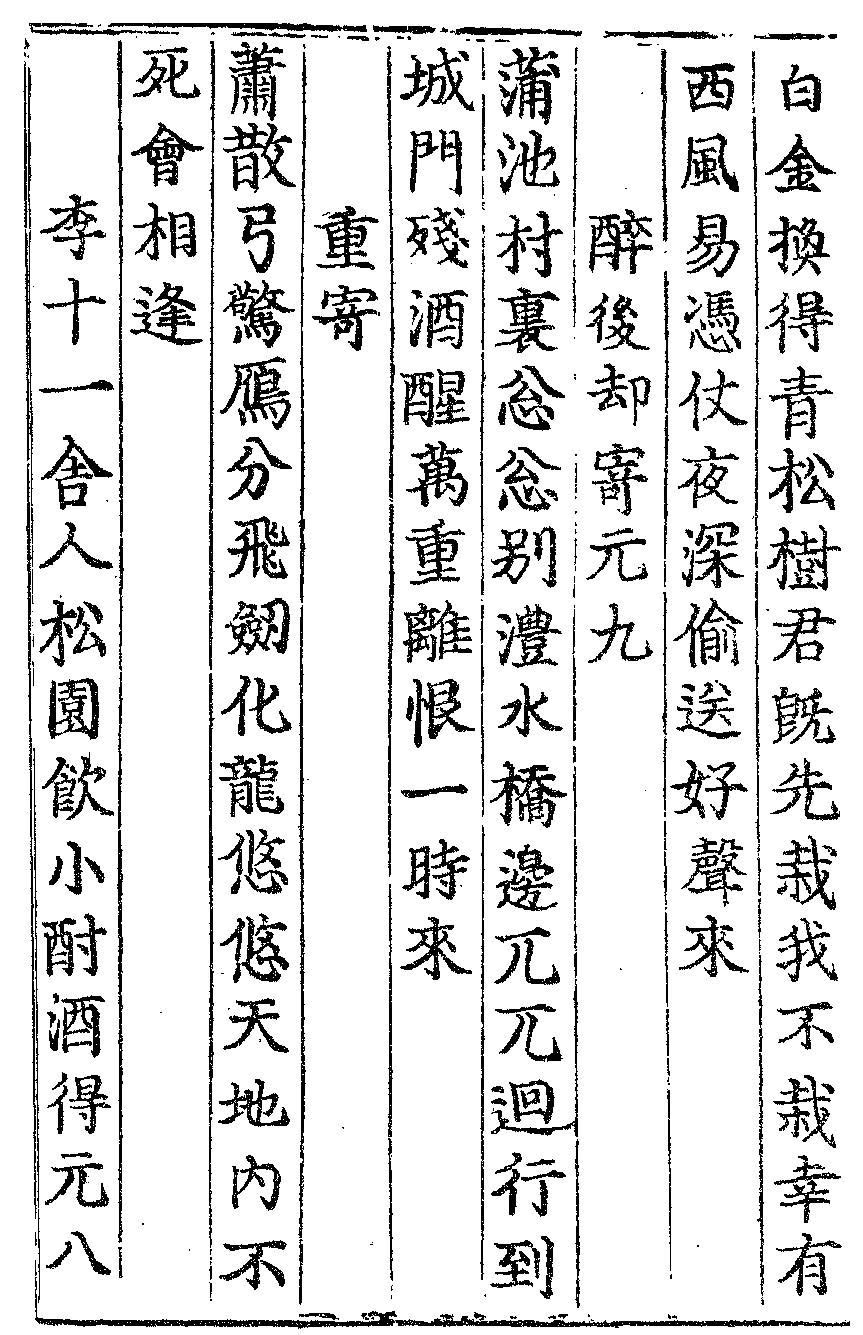 白金換得青松樹君旣先栽我不栽幸有
西風易憑仗夜深偷送好聲來
醉後却寄元九
蒲池村裏忩忩别澧水橋邊兀兀迴行到
城門殘酒醒萬重離恨一時來
重寄
蕭散弓驚鴈分飛劒化龍悠悠天地內不
死會相逢
李十一舍人松園飲小酎酒得元八